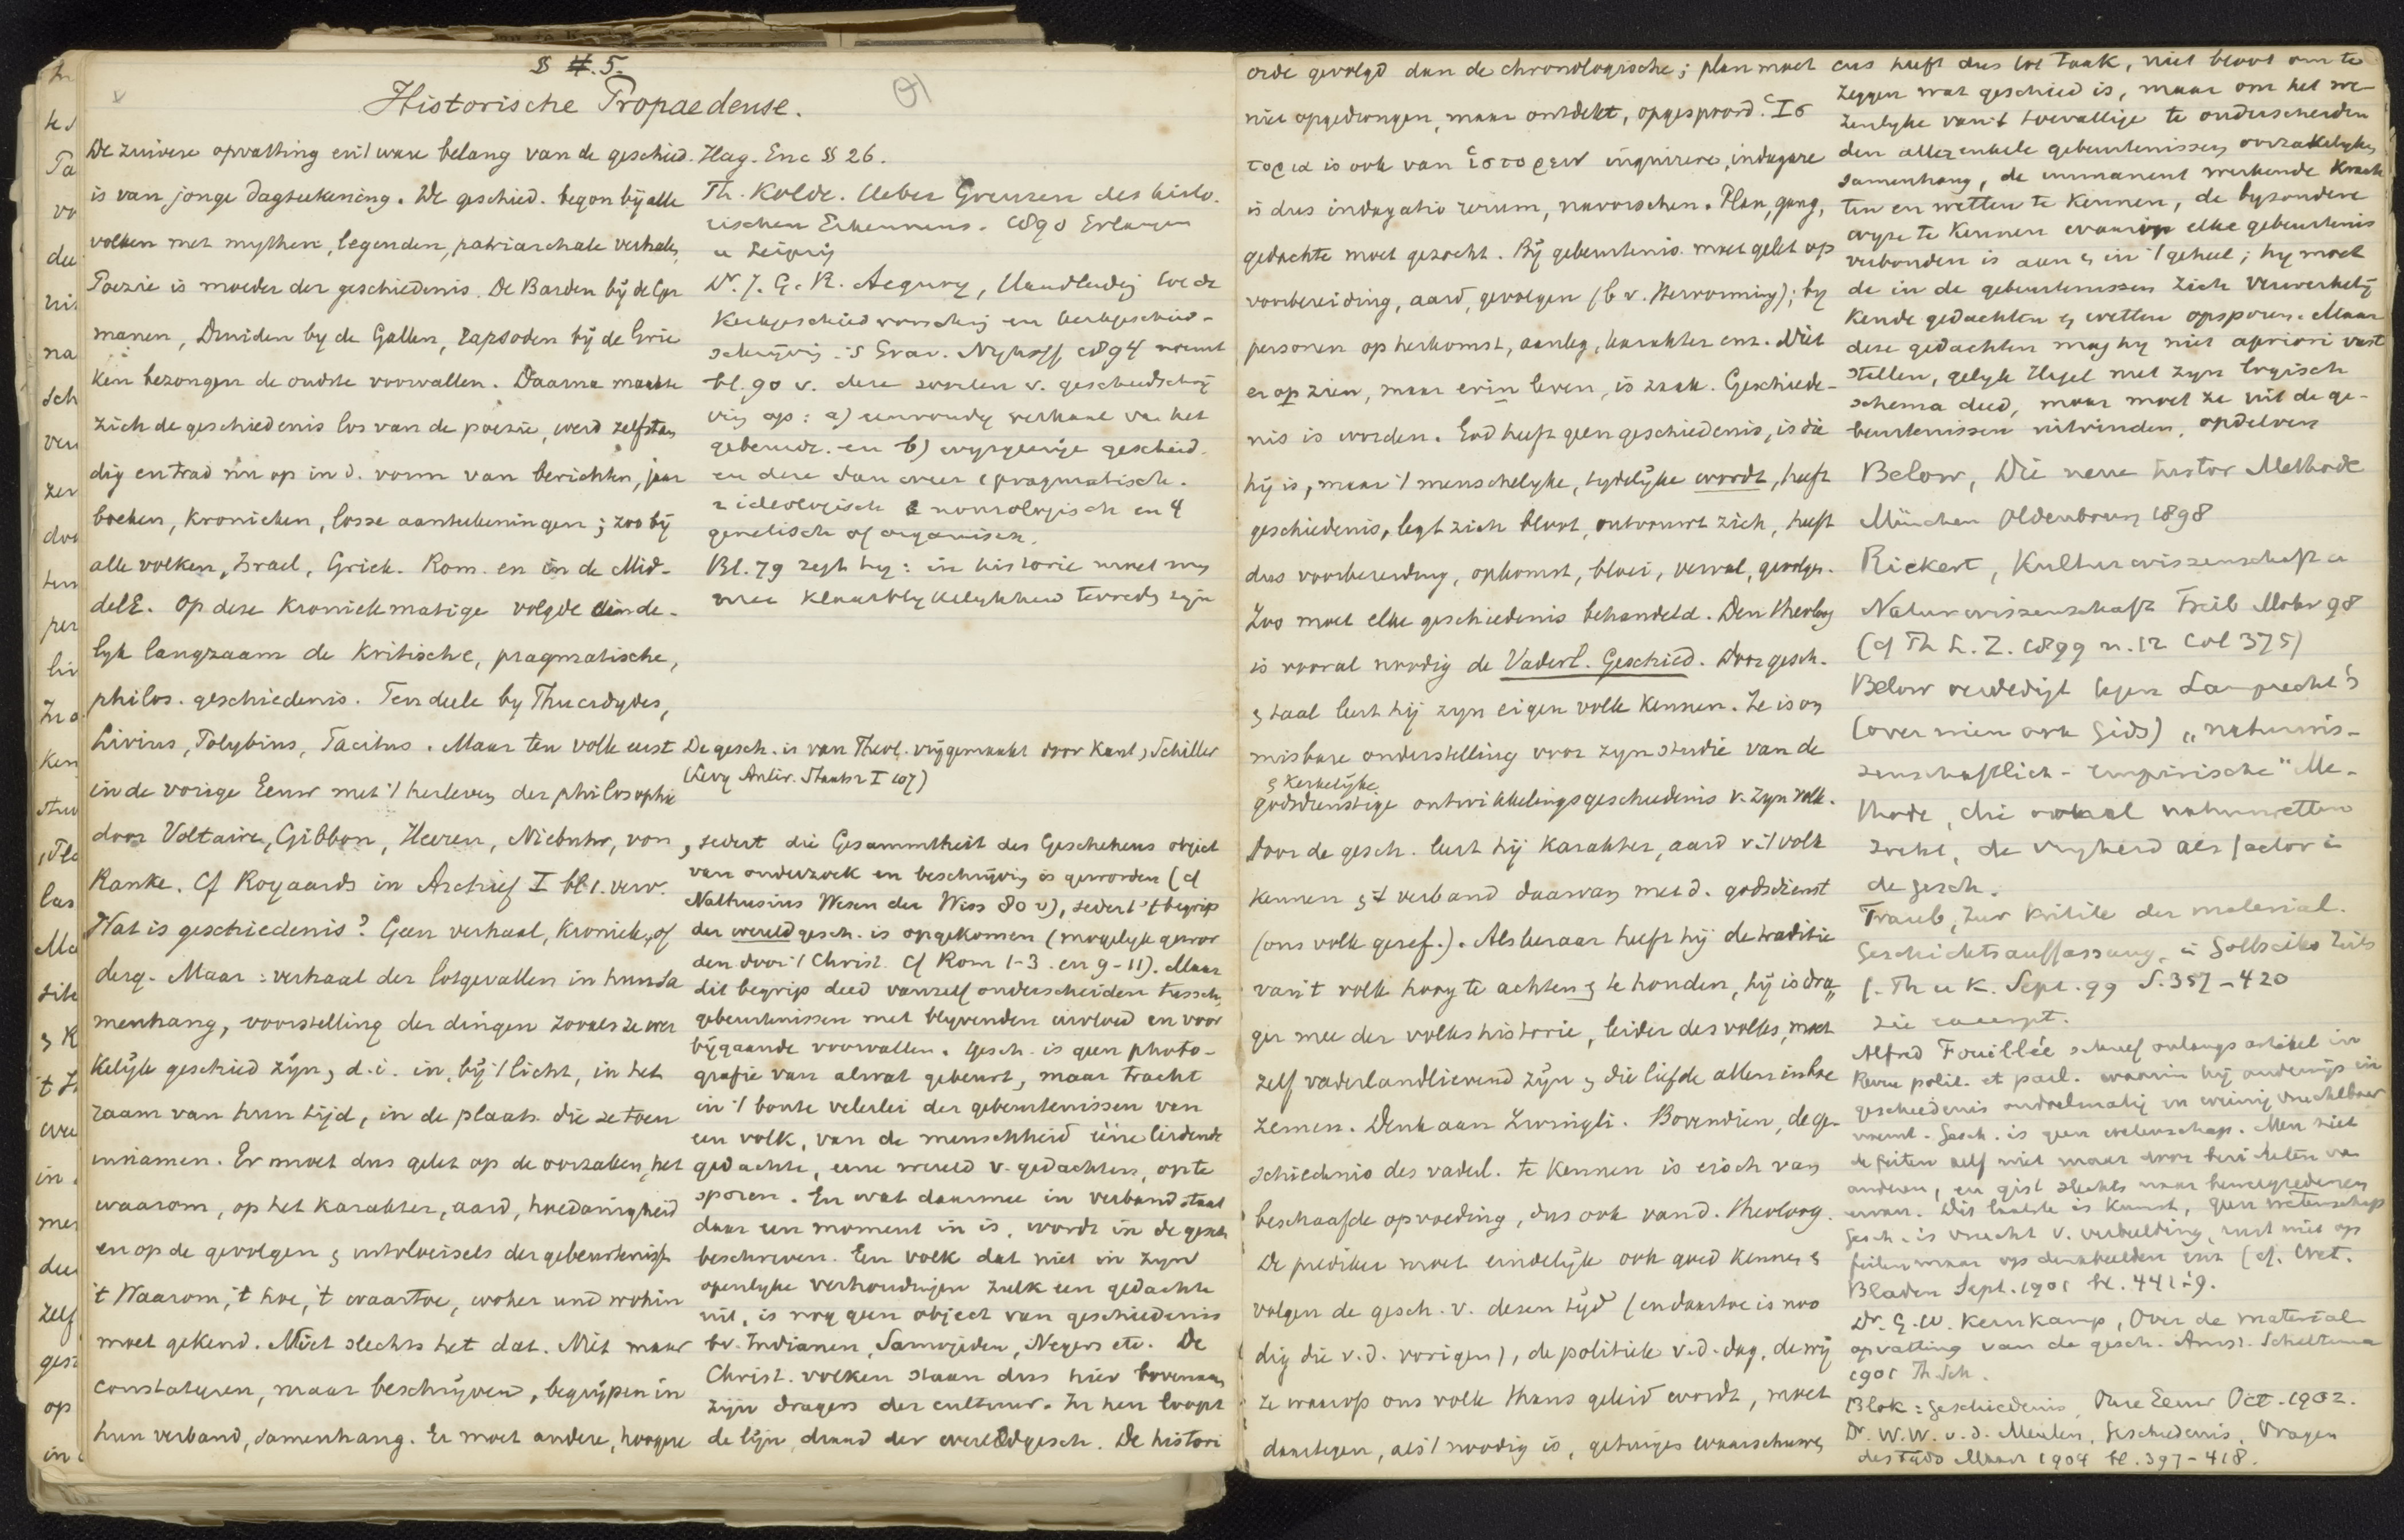 § 5.
Historische Propaedeuse.
De zuivere opvatting en 't ware belang van de geschied.
is van jonge dagteekening. De geschied. begon bij alle
volken met mythen, legenden, patriarchale verhalen,
Poezie is moeder der geschiedenis. De Barden bij de Ger
manen, Druiden by de Galliën, rapsoden bij de Grie
ken bezongen de oudste voorvallen. Daarna maakte
zich de geschiedenis los van de poezie, werd zelfstan
dig en trad nu op in d. vorm van berichten, jaar
boeken, kronieken, losse aanteekeningen; zoo bij
alle volken, Israel, Griek. Rom. en in de Mid-
delE. Op deze kroniekmatige volgde einde-
lyk langzaam de kritische, pragmatische,
philos. geschiedenis. Ten deele by Thucydydes,
Livius, Polybius, Tacitus. Maar ten volle eerst
in de vorige Eeuw met 't herleven der philosophie
door Voltaire, Gibbon, Heeren, Niebuhr, von
Ranke. Cf Royaards in Archief I bl 1. verv.
Wat is geschiedenis? Geen verhaal, kroniek, of
derg. Maar: verhaal der lotgevallen in hun sa
menhang, voorstelling der dingen zooals ze wer
kelijk geschied zijn, d.i. in, bij 't licht, in het
raam van hun tijd, in de plaats die ze toen
innamen. Er moet dus gelet op de oorzaken, het
waarom, op het karakter, aard, hoedanigheid
en op de gevolgen & uitvloeisels der gebeurtenissen
't Waarom, 't hoe, 't waartoe, woher und wohin
moet gekend. Niet slechts het dat. Niet maar
constateren, maar beschrijven, begrijpen in
hun verband, samenhang. Er moet andere, hoogere
Hag. Enc § 26.
Th. Kolde. Ueber Grenzen des histo.
rischen Erkennens. 1890 Erlangen
u Leipzig
Dr. J. G. R. Acquoy, Handleiding tot de
Kerkgeschiedvorsching en kerkgeschied-
schrijving 's Grav. Nyhoff 1894 noemt
bl. 90 v. deze soorten v. geschiedschrij
ving op: a) eenvoudig verhaal van het
gebeurde. en b) wysgeerige geschied.
en deze dan weer 1 pragmatisch.
2 ideologisch 3 nomologisch en 4
genetisch of organisch.
Bl. 79 zegt hy: in historie moet men
met klaarblykelykheid tevreden zijn
De gesch. is van Theol. vrijgemaakt door Kant, Schiller
(Levy Antir. Staatsr I 107)
, sedert die Gesammtheit des Geschehens object
van onderzoek en beschrijving is geworden (cf
Nathusius Wesen der Wiss 80 v), sedert 't begrip
der wereldgesch. is opgekomen (mogelyk gewor
den door 't Christ. Cf Rom 1-3. en 9-11). Maar
dit begrip deed vanzelf onderscheiden tussch.
gebeurtenissen met blyvenden invloed en voor
bijgaande voorvallen. Gesch. is geen photo-
grafie van alwat gebeurt, maar tracht
in 't bonte velerlei der gebeurtenissen van
een volk, van de menschheid ééne leidende
gedachte, eene wereld v. gedachten, op te
sporen. En wat daarmee in verband staat
daar een moment in is, wordt in de gesch
beschreven. Een volk dat niet in zyn
openlyke verhoudingen zulk een gedachte
uit, is nog geen object van geschiedenis
bv. Indianen, Samojeden, Negers etc. De
Christ. volken staan dus hier bovenaan
zijn dragers der cultuur. In hen loopt
de lijn, draad der wereldgesch. De histori
orde gevolgd dan de chronologische; plan moet
niet opgedrongen, maar ontdekt, opgespoord. Ἱσ
τορια is ook van ἱστορειν inquirere, indagare
is dus indagatio rerum, navorschen. Plan, gang,
gedachte moet gezocht. Bij gebeurtenis. moet gelet op
voorbereiding, aard, gevolgen (b v. Hervorming); by
personen op herkomst, aanleg, karakter enz. Niet
er op zien, maar erin leven, is zaak. Geschiede-
nis is worden. God heeft geen geschiedenis, is die
hij is, maar 't menschelyke, tydelijke wordt, heeft
geschiedenis, legt zich bloot, ontvouwt zich, heeft
dus voorbereiding, opkomst, bloei, verval, gevolgen.
Zoo moet elke geschiedenis behandeld. Den theoloog
is vooral noodig de Vaderl. Geschied. Door gesch.
& taal leert hij zyn eigen volk kennen. Ze is on
misbare onderstelling voor zyn studie van de
& kerkelijke
godsdienstige ontwikkelingsgeschiedenis v. zyn volk.
Door de gesch. leert hij karakter, aard v. 't volk
kennen & 't verband daarvan met d. godsdienst
(ons volk geref.). Als leraar heeft hij de traditie
van 't volk hoog te achten & te houden, hij is dra„
ger mee der volkshistorie, leider des volks, moet
zelf vaderlandlievend zijn & die liefde allen inboe
zemen. Denk aan Zwingli. Bovendien, de ge-
schiedenis des vaderl. te kennen is eisch van
beschaafde opvoeding, dus ook van d. theoloog.
De prediker moet eindelijk ook goed kennen &
volgen de gesch. v. dezen tijd (en daartoe is noo
dig die v. d. vorigen), de politiek v. d. dag, de wij
ze waarop ons volk thans geleid wordt, moet
daartegen, als 't noodig is, getuiges waarschuwen
cus heeft dus tot taak, niet bloot om te
zeggen wat geschied is, maar om het we-
zenlyke van 't toevallige te onderscheiden
den allerenkele gebeurtenissen oorzakelyken
samenhang, de immanent werkende krach
ten en wetten te kennen, de byzondere
wyze te kennen waarop elke gebeurtenis
verbonden is aan & in 't geheel; hy moet
de in de gebeurtenissen zich verwerkelij
kende gedachten & wetten opsporen. Maar
deze gedachten mag hy niet apriori vast
stellen, gelyk Hegel met zyn logisch
schema deed, maar moet ze uit de ge-
beurtenissen uitvinden, opdelven
Below, Die neue histor Methode
München Oldenbourg 1898
Rickert, Kulturwissenschaft u
Naturwissenschaft Freib Mohr 98
(cf Th L. Z. 1899 n. 12 Col 375)
Below verdedigt tegen Lamprecht's
(over wien ook Gids) „naturwis-
senschaftlich-empirische" Me-
thode, die overal natuurwetten
zoekt, de vryheid als factor in
de gesch.
Traub, Zur Kritik der material.
Geschichtsauffassung, in Gottschiks Zeits
f. Th u K. Sept. 99 S. 357-420
zie excerpt.
Alfred Fouillée schreef onlangs artikel in
Revue polit. et parl. waarin hij onderwijs in
geschiedenis ondoelmatig en weinig vruchtbaar
noemt. Gesch. is geen wetenschap. Men ziet
de feiten zelf niet maar door berichten van
anderen, en gist slechts naar beweegredenen
ervan. Dit laatste is kunst, geen wetenschap
Gesch. is vrucht v. verbeelding, rust niet op
feiten maar op denkbeelden enz (cf. Wet.
Bladen Sept. 1901 bl. 441-9.
Dr. G. W. Kernkamp, Over de material
opvatting van de gesch. Amst. Scheltema
1901 Th. Sch.
Blok: Geschiedenis, Onze Eeuw Oct. 1902.
Dr. W. W. v. d. Meulen, Geschiedenis, Vragen
des Tijds Maart 1904 bl. 397-418.